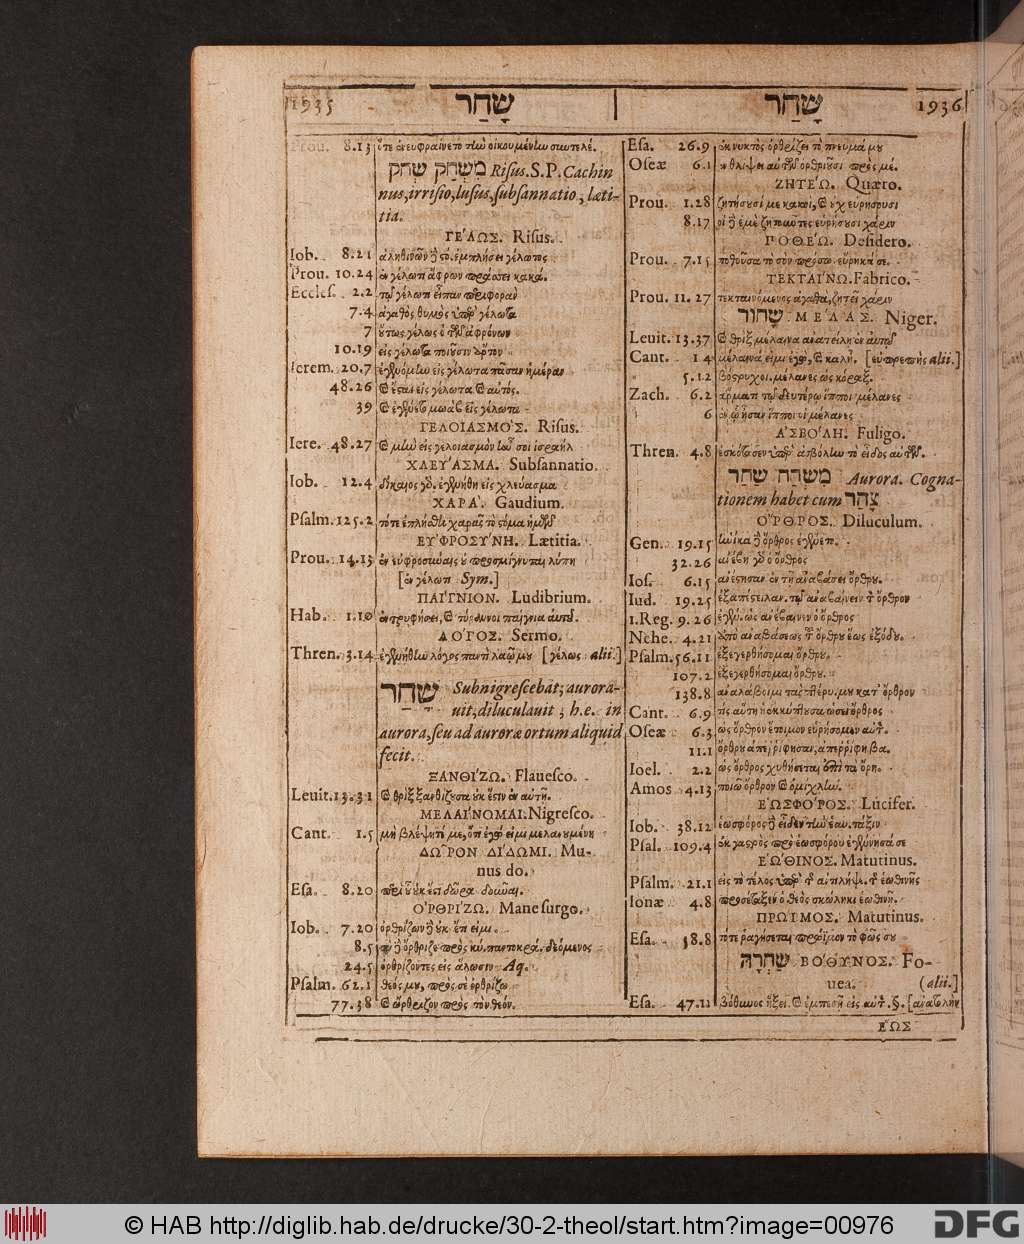 1935 שָׁחַר שָׁחַר 1936
Prou. 8.13 ὅτε
מִשְׂחָק שְׂחֹק Risus. S.P. Cachin
nus, irrisio, lusus, subsannatio, læti-
tia.
ΓΕ΄ΛΩΣ. Risus.
Iob. 8.21 γέλωτος
Prou. 10.24 ἐν γέλωτι ἄφρων πράσσει κακά.
Eccles. 2.2 τῷ γέλωτι εἶπα περιφορὰν
7.4 ἀγαθὸς θυμὸς ὑπὲρ γέλωτα
7 οὕτως γέλως ὁ τῶν ἀφρόνων
10.19 εἰς γέλωτα ποιοῦσιν ἄρτον
Ierem. 20.7 ἐγενόμην εἰς γέλωτα πᾶσαν ἡμέραν
48.26 καὶ ἔσται εἰς γέλωτα καὶ αὐτός.
39 καὶ ἐγένετο μωὰβ εἰς γέλωτα
ΓΕΛΟΙΑΣΜΟ΄Σ. Risus.
Iere. 48.27 καὶ εἰ μὴ εἰς γελοιασμὸν ἦν σοι ἰσραήλ
ΧΛΕΥ΄ΑΣΜΑ. Subsannatio.
Iob. 12.4 δίκαιος γὰρ ἐγενήθη εἰς χλεύασμα
ΧΑΡΑ΄. Gaudium.
Psalm. 125.2 τότε ἐπλήσθη χαρᾶς τὸ στόμα ἡμῶν
ΕΥ᾿ΦΡΟΣΥ΄ΝΗ. Lætitia.
Prou. 14.13 ἐν εὐφροσύναις οὐ προσμίγνυται λύπη
[ἐν γέλωτι Sym.]
ΠΑΙ΄ΓΝΙΟΝ. Ludibrium.
Hab. 1.10 ἐντρυφήσει, καὶ τύραννοι παίγνια αὐτοῦ.
ΛΟ΄ΓΟΣ. Sermo.
Thren. 3.14 ἐγενήθην λόγος παντὶ λαῷ μου [γέλως alii.]
שָׁחַר Subnigrescebat; aurora-
uit, diluculauit, h.e. in
aurora, seu ad auroræ ortum aliquid
fecit.
ΞΑΝΘΙ΄ΖΩ. Flauesco.
Leuit. 13.31 καὶ θρὶξ ξανθίζουσα οὐκ ἔστιν ἐν αὐτῇ.
ΜΕΛΑΙ΄ΝΟΜΑΙ. Nigresco.
Cant. 1.5 μὴ βλέψητέ με, ὅτι ἐγώ εἰμι μελανωμένη
ΔΩ῀ΡΟΝ ΔΙ΄ΔΩΜΙ. Mu-
nus do.
Esa. 8.20 περὶ οὗ οὐκ ἔστι δῶρα δοῦναι.
Ο᾿ΡΘΡΙ΄ΖΩ. Mane surgo.
Iob. 7.20 ὀρθρίζων δὲ οὐκ ἔτι εἰμί.
8.5 σὺ δὲ ὄρθριζε πρὸς κύ. παντοκρά. δεόμενος
24.5 ὀρθρίζοντες εἰς ἅλωσιν Aq.
Psalm. 62.1 θεός μου, πρὸς σὲ ὀρθρίζω
77.38 καὶ ὤρθριζον πρὸς τὸν θεόν.
Esa. 26.9 ἐκ νυκτὸς ὀρθρίζει τὸ πνεῦμά μου
Oseæ 6.1 ἐν θλίψει αὐτῶν ὀρθριοῦσι πρὸς μέ.
ΖΗΤΕ΄Ω. Quæro.
Prou. 1.28 ζητήσουσί με κακοί, καὶ οὐχ εὑρήσουσι
8.17 οἱ δὲ ἐμὲ ζητοῦντες εὑρήσουσι χάριν
ΠΟΘΕ΄Ω. Desidero.
Prou. 7.15 ποθοῦσα τὸ σὸν πρόσω. εὕρηκά σε.
ΤΕΚΤΑΙ΄ΝΩ. Fabrico.
Prou. 11.27 τεκταινόμενος ἀγαθὰ, ζητεῖ χάριν
שָׁחוֹר ΜΕ΄ΛΑΣ. Niger.
Leuit. 13.37 καὶ θρὶξ μέλαινα ἀνατείλῃ ἐν αὐτῷ
Cant. 1.4 μέλαινά εἰμι ἐγὼ, καὶ καλή. [εὐπρεπὴς alii.]
5.12 βόστρυχοι. μέλανες ὡς κόραξ.
Zach. 6.2 ἅρματι τῷ δευτέρῳ ἵπποι μέλανες
6 ἐν ᾧ ἦσαν ἵπποι οἱ μέλανες
Α᾿ΣΒΟ΄ΛΗ. Fuligo.
Thren. 4.8 ἐσκότασεν ὑπὲρ ἀσβόλην τὸ εἶδος αὐτῶν.
מִשְׁחָר שַׁחַר Aurora. Cogna-
tionem habet cum צָהַר
Ο῎ΡΘΡΟΣ. Diluculum.
Gen. 19.15 ἡνίκα δὲ ὄρθρος ἐγένετο.
32.26 ἀνέβη γὰρ ὁ ὄρθρος
Ios. 6.15 ἀνέστησαν ἐν τῇ ἀναβάσει ὄρθρου.
Iud. 19.25 ἐξαπέστειλαν. τῷ ἀναβαίνειν τὸν ὄρθρον
1.Reg. 9.26 ἐγένε. ὡς ἀνέβαινεν ὁ ὄρθρος
Nehe. 4.21 ἀπὸ ἀναβάσεως τοῦ ὄρθρου ἕως ἐξόδου.
Psalm. 56.11 ἐξεγερθήσομαι ὄρθρου.
107.2 ἐξεγερθήσομαι ὄρθρου.
138.8 ἀναλάβοιμι τὰς πτέρυ. μου κατ᾽ ὄρθρον
Cant. 6.9 τίς αὕτη ἡ ἐκκύπτουσα ὡσεὶ ὄρθρος
Oseæ 6.3 ὡς ὄρθρον ἕτοιμον εὑρήσομεν αὐτόν.
11.1 ὄρθρου ἀπερρίφησαν, ἀπερρίφη βα.
Ioel. 2.2 ὡς ὄρθρος χυθήσεται ἐπὶ τὰ ὄρη.
Amos 4.13 ποιῶν ὄρθρον καὶ ὁμίχλην.
Ε῾ΩΣΦΟ΄ΡΟΣ. Lucifer.
Iob. 38.12 ἑωσφόρος δὲ εἶδεν τὴν ἑαυ. τάξιν
Psal. 109.4 ἐκ γαστρὸς πρὸ ἑωσφόρου ἐγέννησά σε
Ε῾ΩΘΙΝΟΣ. Matutinus.
Psalm. 21.1 εἰς τὸ τέλος ὑπὲρ τῆς ἀντιλήψε. τῆς ἑωθινῆς
Ionæ 4.8 προσέταξεν ὁ θεὸς σκώληκι ἑωθινῇ.
ΠΡΩΙ΄ΜΟΣ. Matutinus.
Esa. 58.8 τότε ῥαγήσεται πρώϊμον τὸ φῶς σου
שַׁחְרָהּ ΒΟ΄ΘΥΝΟΣ. Fo-
uea. (alii.]
Esa. 47.11 βόθυνος ἥξει καὶ ἐμπεσῇ εἰς αὐτόν.
ΕΩΣ
© HAB http://diglib.hab.de/drucke/30-2-theol/start.htm?image=00976
DFG